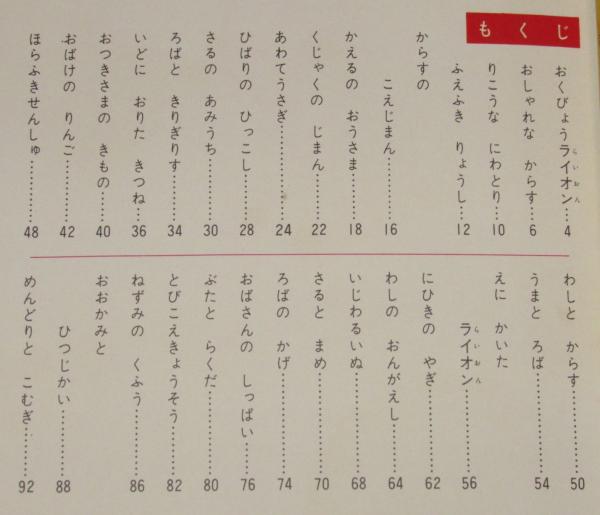 もくじ
おくびょうライオン…………4
らいおん
おしゃれな からす…………6
りこうな にわとり…………10
ふえふき りょうし…………12
からすの
こえじまん…………16
かえるの おうさま…………18
くじゃくの じまん…………22
あわてうさぎ…………24
ひばりの ひっこし…………28
さるの あみうち…………30
ろばと きりぎりす…………34
いどに おりた きつね…………36
おつきさまの きもの…………40
おばけの りんご…………42
ほらふきせんしゅ…………48
わしと からす…………50
うまと ろば…………54
えに かいた
ライオン…………56
らいおん
にひきの やぎ…………62
わしの おんがえし…………64
いじわるいぬ…………68
さると まめ…………70
ろばの かげ…………74
おばさんの しっぱい…………76
ぶたと らくだ…………80
とびこえきょうそう…………82
ねずみの くふう…………86
おおかみと
ひつじかい…………88
めんどりと こむぎ…………92